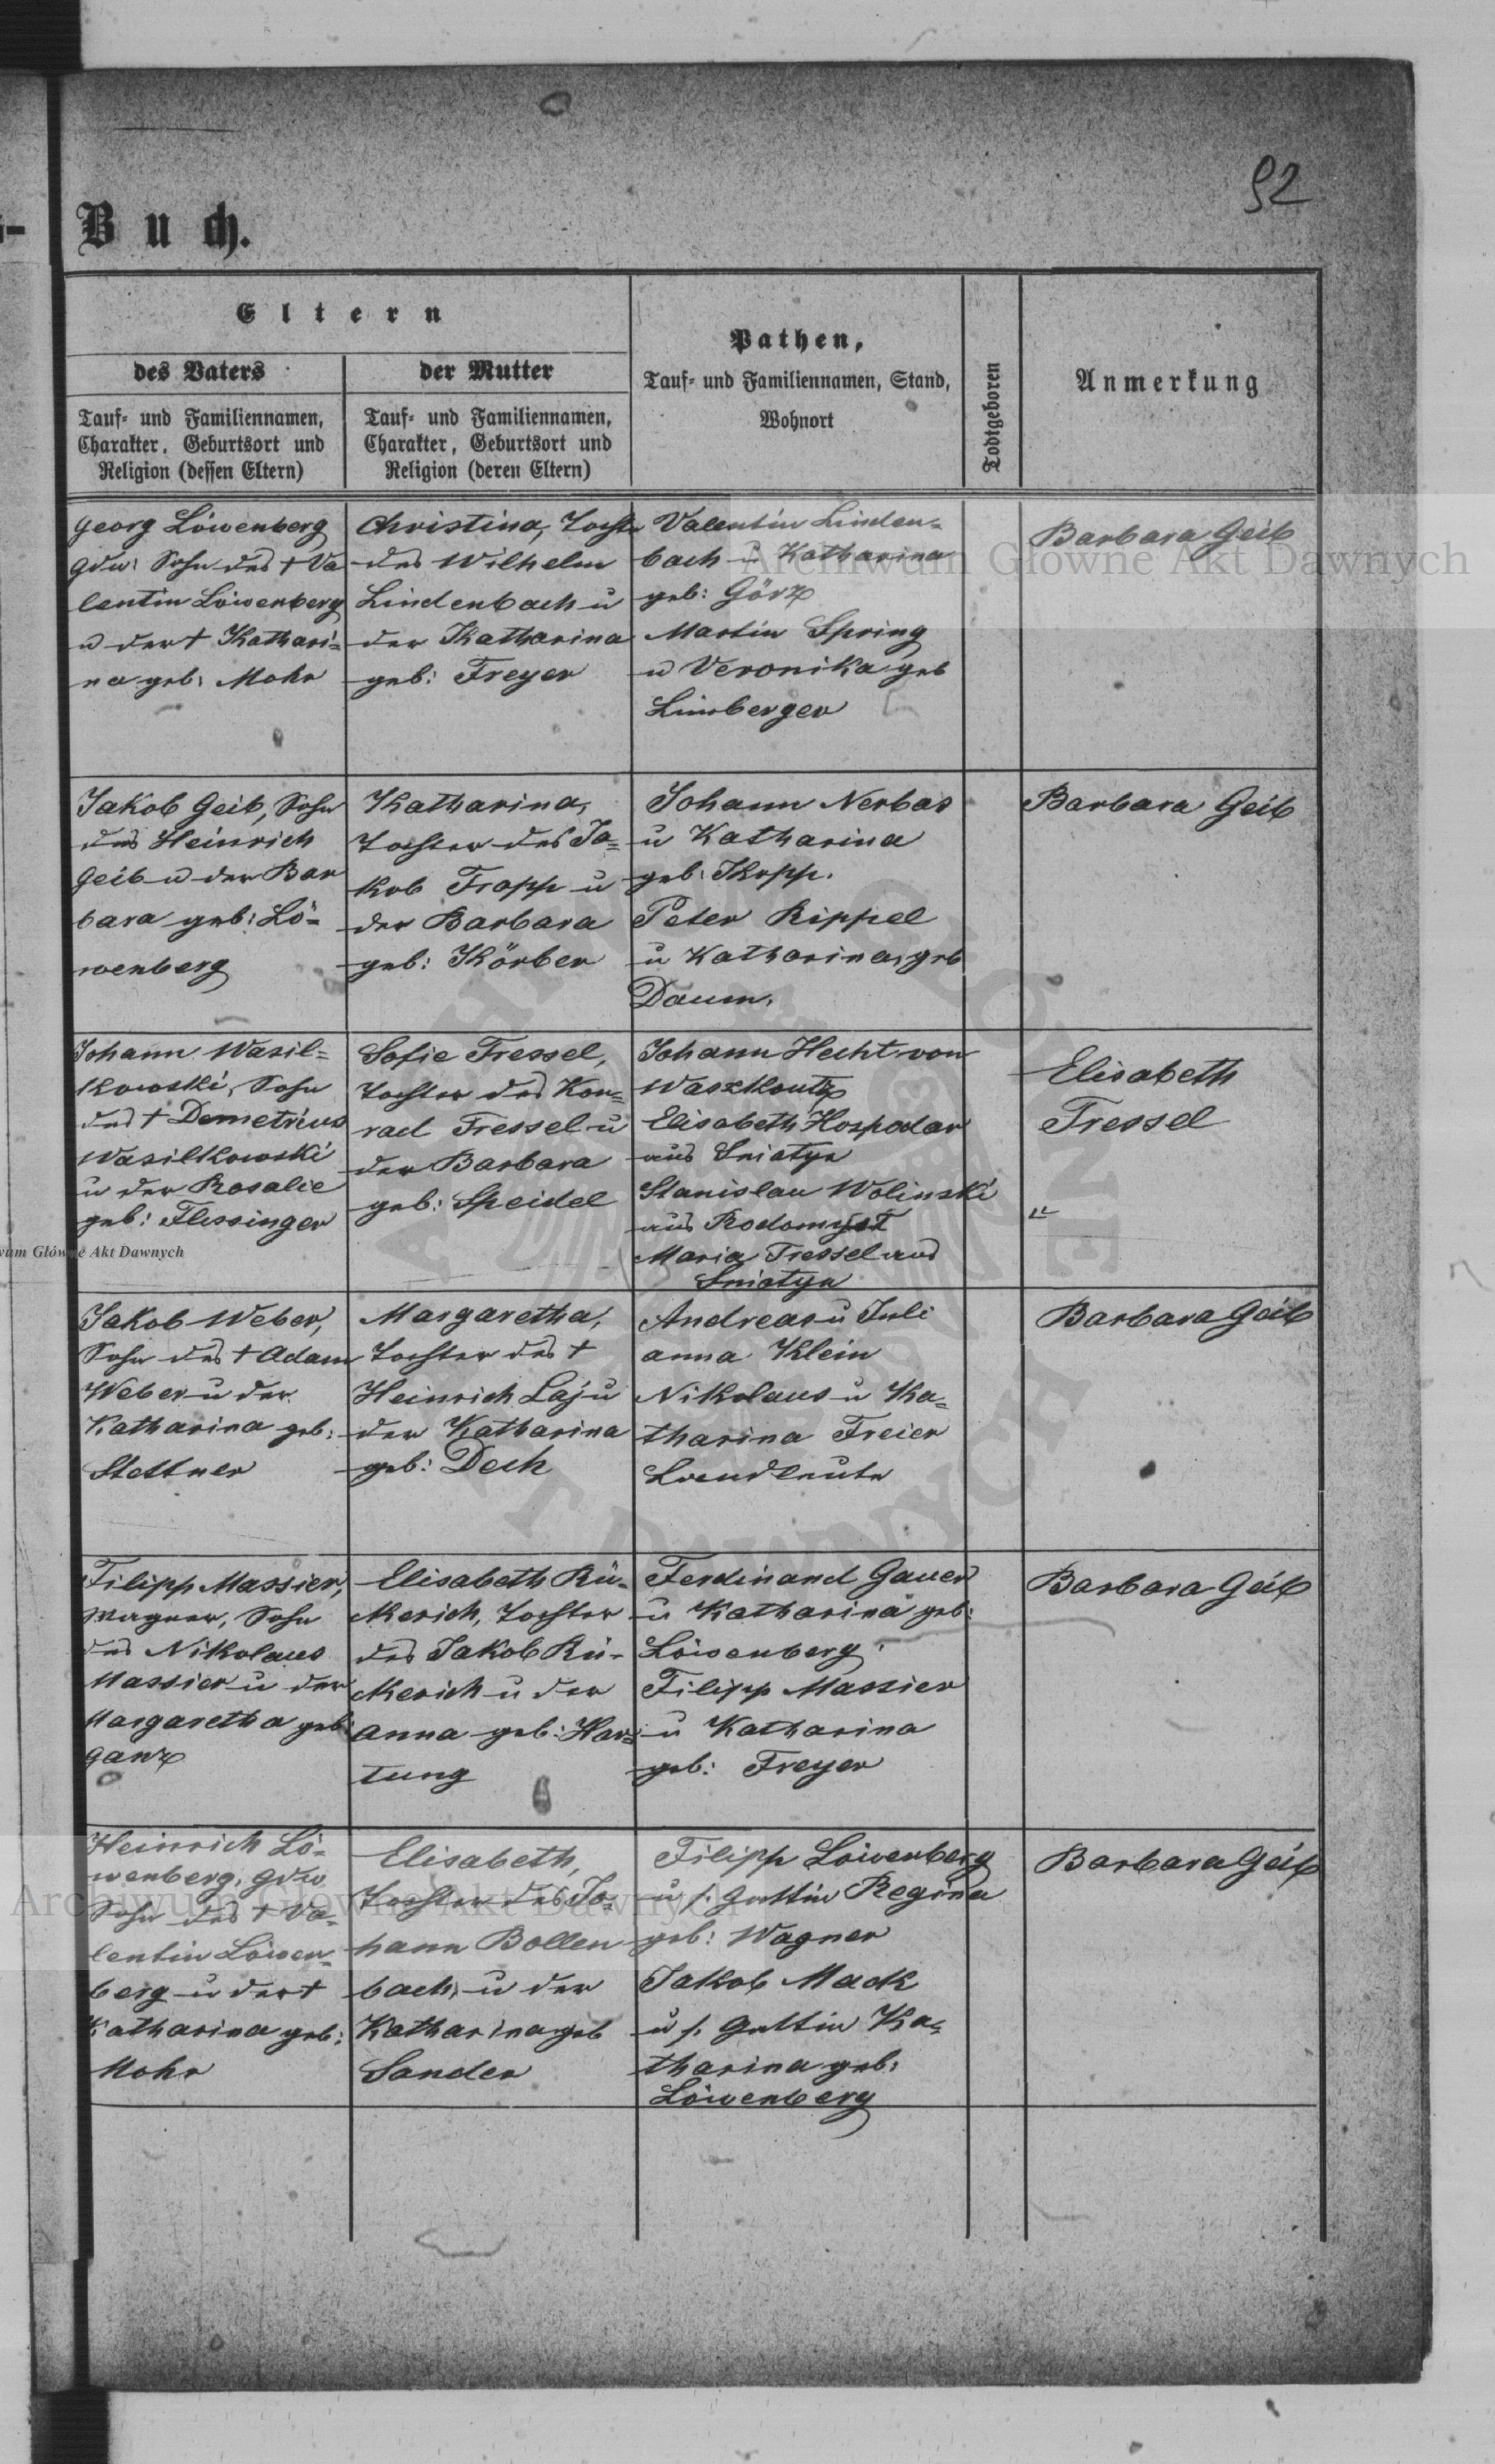 92
Buch.
Eltern
des Vaters
Tauf- und Familiennamen,
Charakter, Geburtsort und
Religion (dessen Eltern)
der Mutter
Tauf- und Familiennamen,
Charakter, Geburtsort und
Religion (deren Eltern)
Pathen,
Tauf- und Familiennamen, Stand,
Wohnort
Todtgeboren
Anmerkung
Georg Löwenberg
Gdw: Sohn des † Va
lentin Löwenberg
u der † Kathari-
na geb: Mohr
Christina, Tochter
des Wilhelm
Lindenbach u
der Katharina
geb: Freyer
Valentin Linden-
bach u Katharina
geb: Görz
Martin Spring
u Veronika geb
Limberger
Barbara Geib
Jakob Geib, Sohn
des Heinrich
Geib u der Bar
bara geb: Lö-
wenberg
Katharina,
Tochter des Ja-
kob Trapp u
der Barbara
geb: Körber
Johann Nerbas
u Katharina
geb: Kopp.
Peter Rippel
u Katharina, geb
Daum.
Barbara Geib
Johann Wasil-
kowski, Sohn
des † Demetrius
Wasilkowski
u der Rosalie
geb: Flessinger
Sofie Tressel,
Tochter des Kon-
rad Tressel u
der Barbara
geb: Speidel
Johann Hecht von
Waszkoutz
Elisabeth Hospodar
aus Sniatyn
Stanislau Wolinski
aus
Maria Tressel aus
Sniatyn
Elisabeth
Tressel
Jakob Weber,
Sohn des † Adam
Weber u der
Katharina geb:
Stettner
Margaretha,
Tochter des †
Heinrich Laj u
der Katharina
geb: Dech
Andreas u Juli
anna Klein
Nikolaus u Ka-
tharina Freier
Landleute
Barbara Geib
Filipp Massier,
Wagner, Sohn
des Nikolaus
Massier u der
Margaretha geb:
Ganz
Elisabeth Rü-
merich, Tochter
des Jakob Rü-
merich u der
Anna geb: Har-
tung
Ferdinand Gauer
u Katharina geb:
Löwenberg
Filipp Massier
u Katharina
geb: Freyer
Barbara Geib
Heinrich Lö-
wenberg, Gdw
Sohn des † Va-
lentin Löwen-
berg u der †
Katharina geb:
Mohr
Elisabeth,
Tochter des Jo-
hann Bollen
bach, u der
Katharina geb
Sander
Filipp Löwenberg
u s. Gattin Regina
geb: Wagner
Jakob Mack
u s. Gattin Ka-
tharina geb:
Löwenberg
Barbara Geib
Archiwum Główne Akt Dawnych
Archiwum Główne Akt Dawnych
wum Główne Akt Dawnych